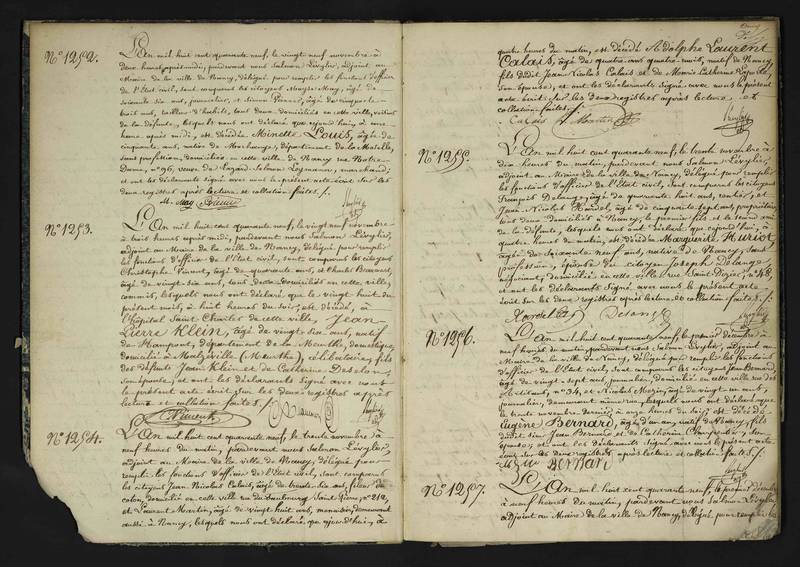 N° 1252.
L'An mil huit cent quarante neuf, le vingt neuf novembre à
deux heures après midi, pardevant nous Salmon Lévylier, adjoint au
Maire de la ville de Nancy, délégué pour remplir les fonctions d'officier
de l'État civil, sont comparus les citoyens Mayer May, âgé de
soixante six ans, journalier, et Simon
trois ans, tailleur d'habits, tous deux domiciliés en cette ville,
de la défunte, lesquels nous ont déclaré que cejourd'hui, à une
heure après midi, est décédée Minette Louis, âgée de
cinquante ans, native de Morhange, département de la Moselle,
sans profession, domiciliée en cette ville de Nancy rue Notre
Dame, n° 96, veuve de Lazard Salomon, marchand;
et ont les déclarants signé avec nous le présent acte écrit sur les
deux registres après lecture et collation faites. /.
M. May
N° 1253.
L'An mil huit cent quarante neuf, le vingt neuf novembre
à trois heures après midi, pardevant nous Salmon Lévylier,
adjoint au Maire de la ville de Nancy, délégué pour remplir
les fonctions d'officier de l'État civil, sont comparus les citoyens
Christophe Piment, âgé de quarante ans, et Charles
âgé de vingt six ans, tous deux domiciliés en cette ville,
commis, lesquels nous ont déclaré que le vingt huit du
présent mois, à huit heures du soir, est décédé, à
l'hôpital Saint Charles de cette ville, Jean-
Pierre Klein, âgé de vingt six ans, natif
de Hampont, département de la Meurthe, domestique,
domicilié à Malzéville (Meurthe), célibataire, fils
des défunts Jean Klein et de Catherine Deslon,
son épouse, et ont les déclarants signé avec nous
le présent acte écrit sur les deux registres après
lecture et collation faites. /.
N° 1254.
L'An mil huit cent quarante neuf, le trente novembre à
neuf heures du matin, pardevant nous Salmon Lévylier,
adjoint au Maire de la ville de Nancy, délégué pour
remplir les fonctions d'officier de l'État civil, sont comparus
les citoyens Jean Nicolas Calais, âgé de trente six ans, fileur de
coton, domicilié en cette ville rue du faubourg Saint Pierre, n° 212,
et Laurent Martin, âgé de vingt huit ans, menuisier, demeurant
aussi à Nancy, lesquels nous ont déclaré, que cejourd'hui, à
quatre heures du matin, est décédé Adolphe Laurent
Calais, âgé de quatre ans, quatre mois, natif de Nancy,
fils dudit Jean Nicolas Calais et de Marie Catherine
son épouse; et ont les déclarants signé avec nous le présent
acte écrit sur les deux registres après lecture et
collation faites. /.
Calais L Martin
N° 1255.
L'An mil huit cent quarante neuf, le trente novembre à
dix heures du matin, pardevant nous Salmon Lévylier,
adjoint au Maire de la ville de Nancy, délégué pour remplir
les fonctions d'officier de l'État civil, sont comparus les citoyens
François Delange, âgé de quarante huit ans, rentier, et
Jean Nicolas Hardel, âgé de quarante sept ans, propriétaire
tous deux domiciliés à Nancy, le premier fils et le second ami
de la défunte, lesquels nous ont déclaré que cejourd'hui, à
quatre heures du matin, est décédée Marguerite Huriot,
âgée de soixante neuf ans, native de Nancy, sans
profession, épouse du citoyen Joseph Delange,
négociant, domiciliée en cette ville rue Saint Dizier, n° 48;
et ont les déclarants signé avec nous le présent acte
écrit sur les deux registres après lecture et collation faites. /.
N° 1256.
L'An mil huit cent quarante neuf, le premier décembre à
neuf heures du matin, pardevant nous Salmon Lévylier, adjoint au
Maire de la ville de Nancy, délégué pour remplir les fonctions
d'officier de l'État civil, sont comparus les citoyens Jean Bernard,
âgé de vingt sept ans, journalier, domicilié en cette ville rue des
n° 34, et Nicolas Morin, âgé de vingt un ans,
journalier, demeurant même rue, lesquels nous ont déclaré que
le trente novembre dernier, à onze heures du soir, est décédé
Eugène Bernard, âgé d'un an, natif de Nancy, fils
dudit sieur Jean Bernard et de Catherine Charpentier, son
épouse; et ont les déclarants signé avec nous le présent acte
écrit sur les deux registres après lecture et collation faites. /.
N° 1257.
L'An mil huit cent quarante neuf, le premier décembre
à neuf heures du matin, pardevant nous Salmon Lévylier,
adjoint au Maire de la ville de Nancy, délégué, pour remplir les